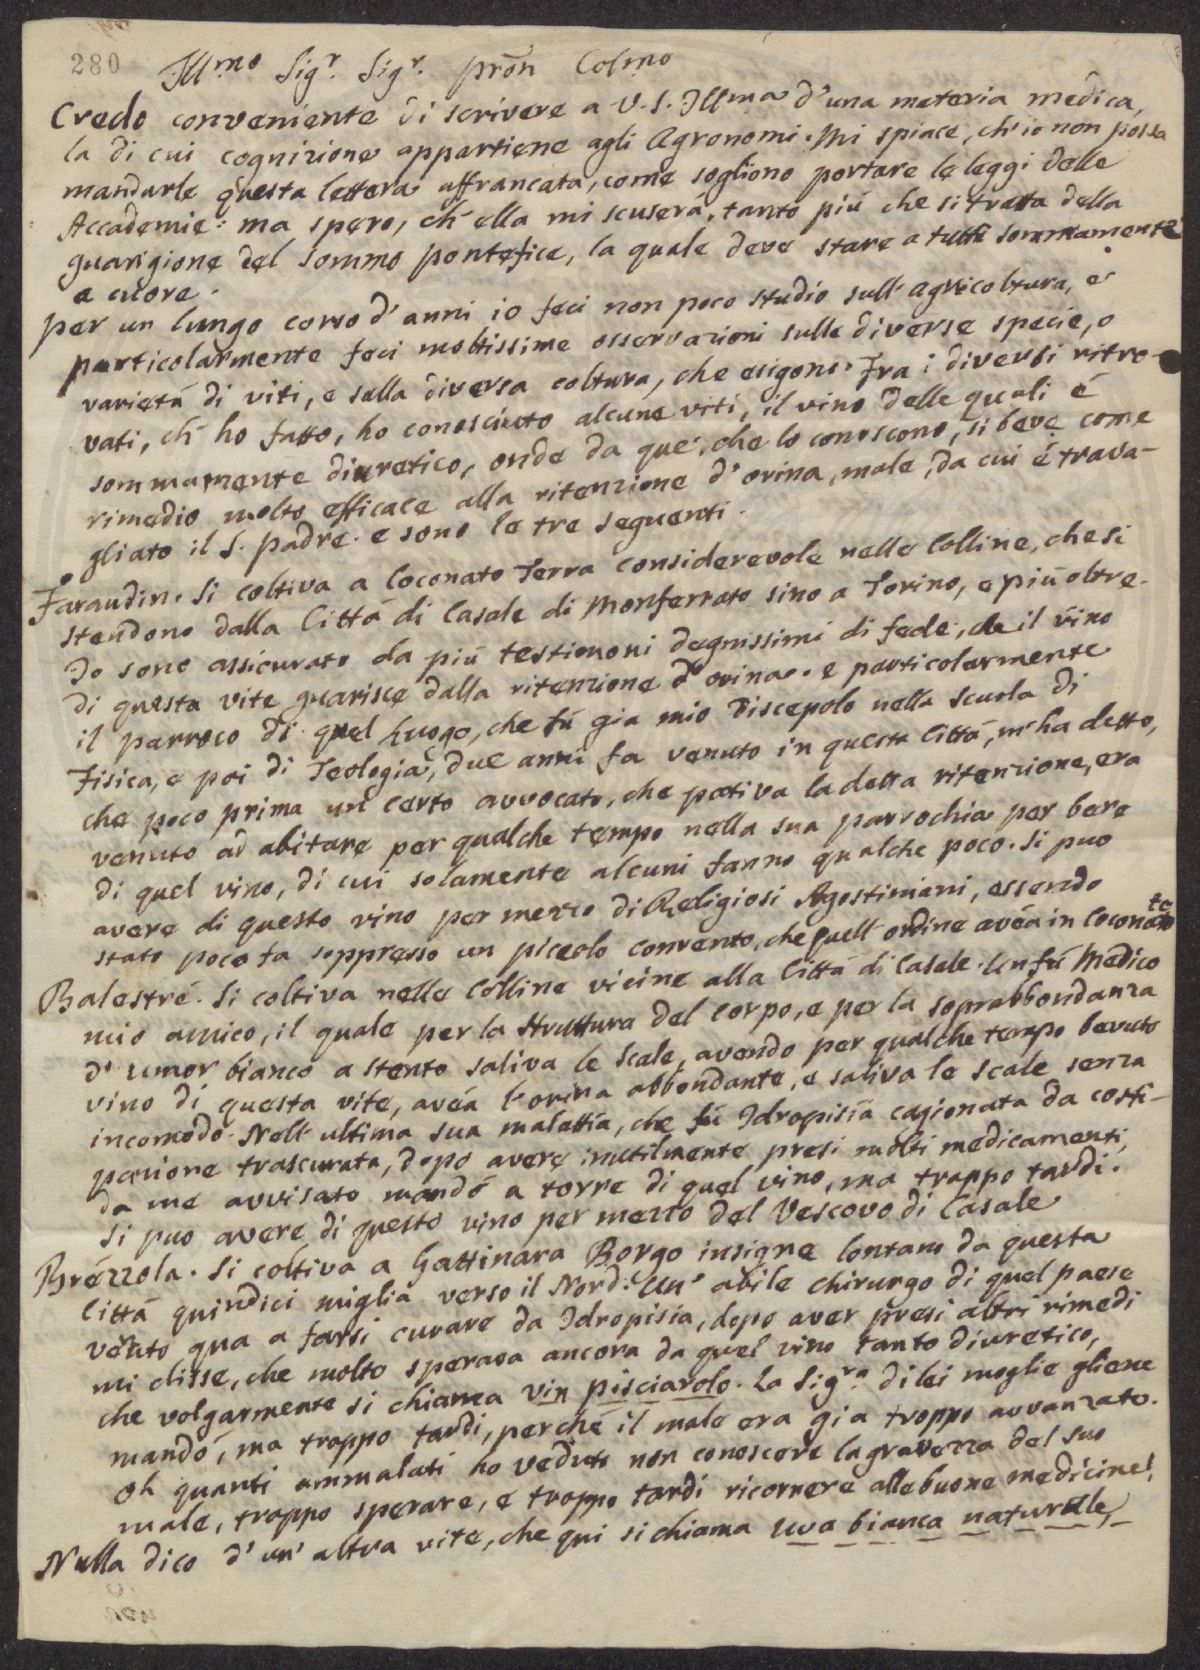 280
Illmo Sigr. Sigr. pron Colmo
Credo conveniente di scrivere a V. S. Illma d'una materia medica,
la di cui cognizione appartiene agli Agronomi. Mi spiace, ch'io non possa
mandarle questa lettera affrancata, come sogliono portare le leggi delle
Accademie: ma spero, ch'ella mi scuserá, tanto piú che si tratta della
guarigione del sommo pontefice, la quale deve stare a tutti sommamente
a cuore.
per un lungo corso d'anni io feci non poco studio sull'agricoltura, e
particolarmente feci moltissime osservazioni sulle diverse specie, o
varietá di viti, e sulla diversa coltura, che esigono. Fra i diversi ritro-
vati, ch'ho fatto, ho conosciuto alcune viti, il vino delle quali é
sommamente diuretico, onde da que', che lo conoscono, si beve come
rimedio molto efficace alla ritenzione d'orina, male, da cui é trava-
gliato il S. padre. e sono le tre seguenti.
Faraudin. Si coltiva a Coconato Terra considerevole nelle Colline, che si
stendono dalla Cittá di Casale di Monferrato sino a Torino, e piú oltre.
Io sono assicurato da piú testimoni degnissimi di fede, che il vino
di questa vite guarisce dalla ritenzione d'orina. e particolarmente
il parroco di quel Luogo, che fú gia mio Discepolo nella scuola di
Fisica, e poi di Teologia, due anni fa venuto in questa Cittá, m'ha detto,
che poco prima un certo avvocato, che pativa la detta ritenzione, era
venuto ad abitare per qualche tempo nella sua parrochia per bere
di quel vino, di cui solamente alcuni fanno qualche poco. Si puo
avere di questo vino per mezzo di Religiosi Agostiniani, essendo
stato poco fa soppresso un piccolo convento, che quell'ordine avéa in Coconato
Balestré. Si coltiva nelle Colline vicine alla Cittá di Casale. Un fú Medico
mio amico, il quale per la struttura del corpo, e per la soprabbondanza
d'umor bianco a stento saliva le scale, avendo per qualche tempo bevuto
vino di questa vite, avéa l'orina abbondante, e saliva le scale senza
incomodo. Nell'ultima sua malattia, che fú Idropisia cagionata da costi-
pazione trascurata, dopo avere inutilmente presi molti medicamenti,
da me avvisato mandó a torre di quel vino, ma troppo tardi.
Si puo avere di questo vino per mezzo del Vescovo di Casale
Brézzola. Si coltiva a Gattinara Borgo insigne lontano da questa
Cittá quindici miglia verso il Nord. Un' abile chirurgo di quel paese
venuto qua a farsi curare da Idropisia, dopo aver presi altri rimedi
mi disse, che molto sperava ancora da quel vino tanto diuretico,
che volgarmente si chiama vin pisciarolo. La Sigra di lei moglie gliene
mandó, ma troppo tardi, perché il male era gia troppo avvanzato.
Oh quanti ammalati ho veduto non conoscere la gravezza del suo
male, troppo sperare, e troppo tardi ricorrere alle buone medicine!
Nulla dico d'un' altra vite, che qui si chiama uva bianca naturale,